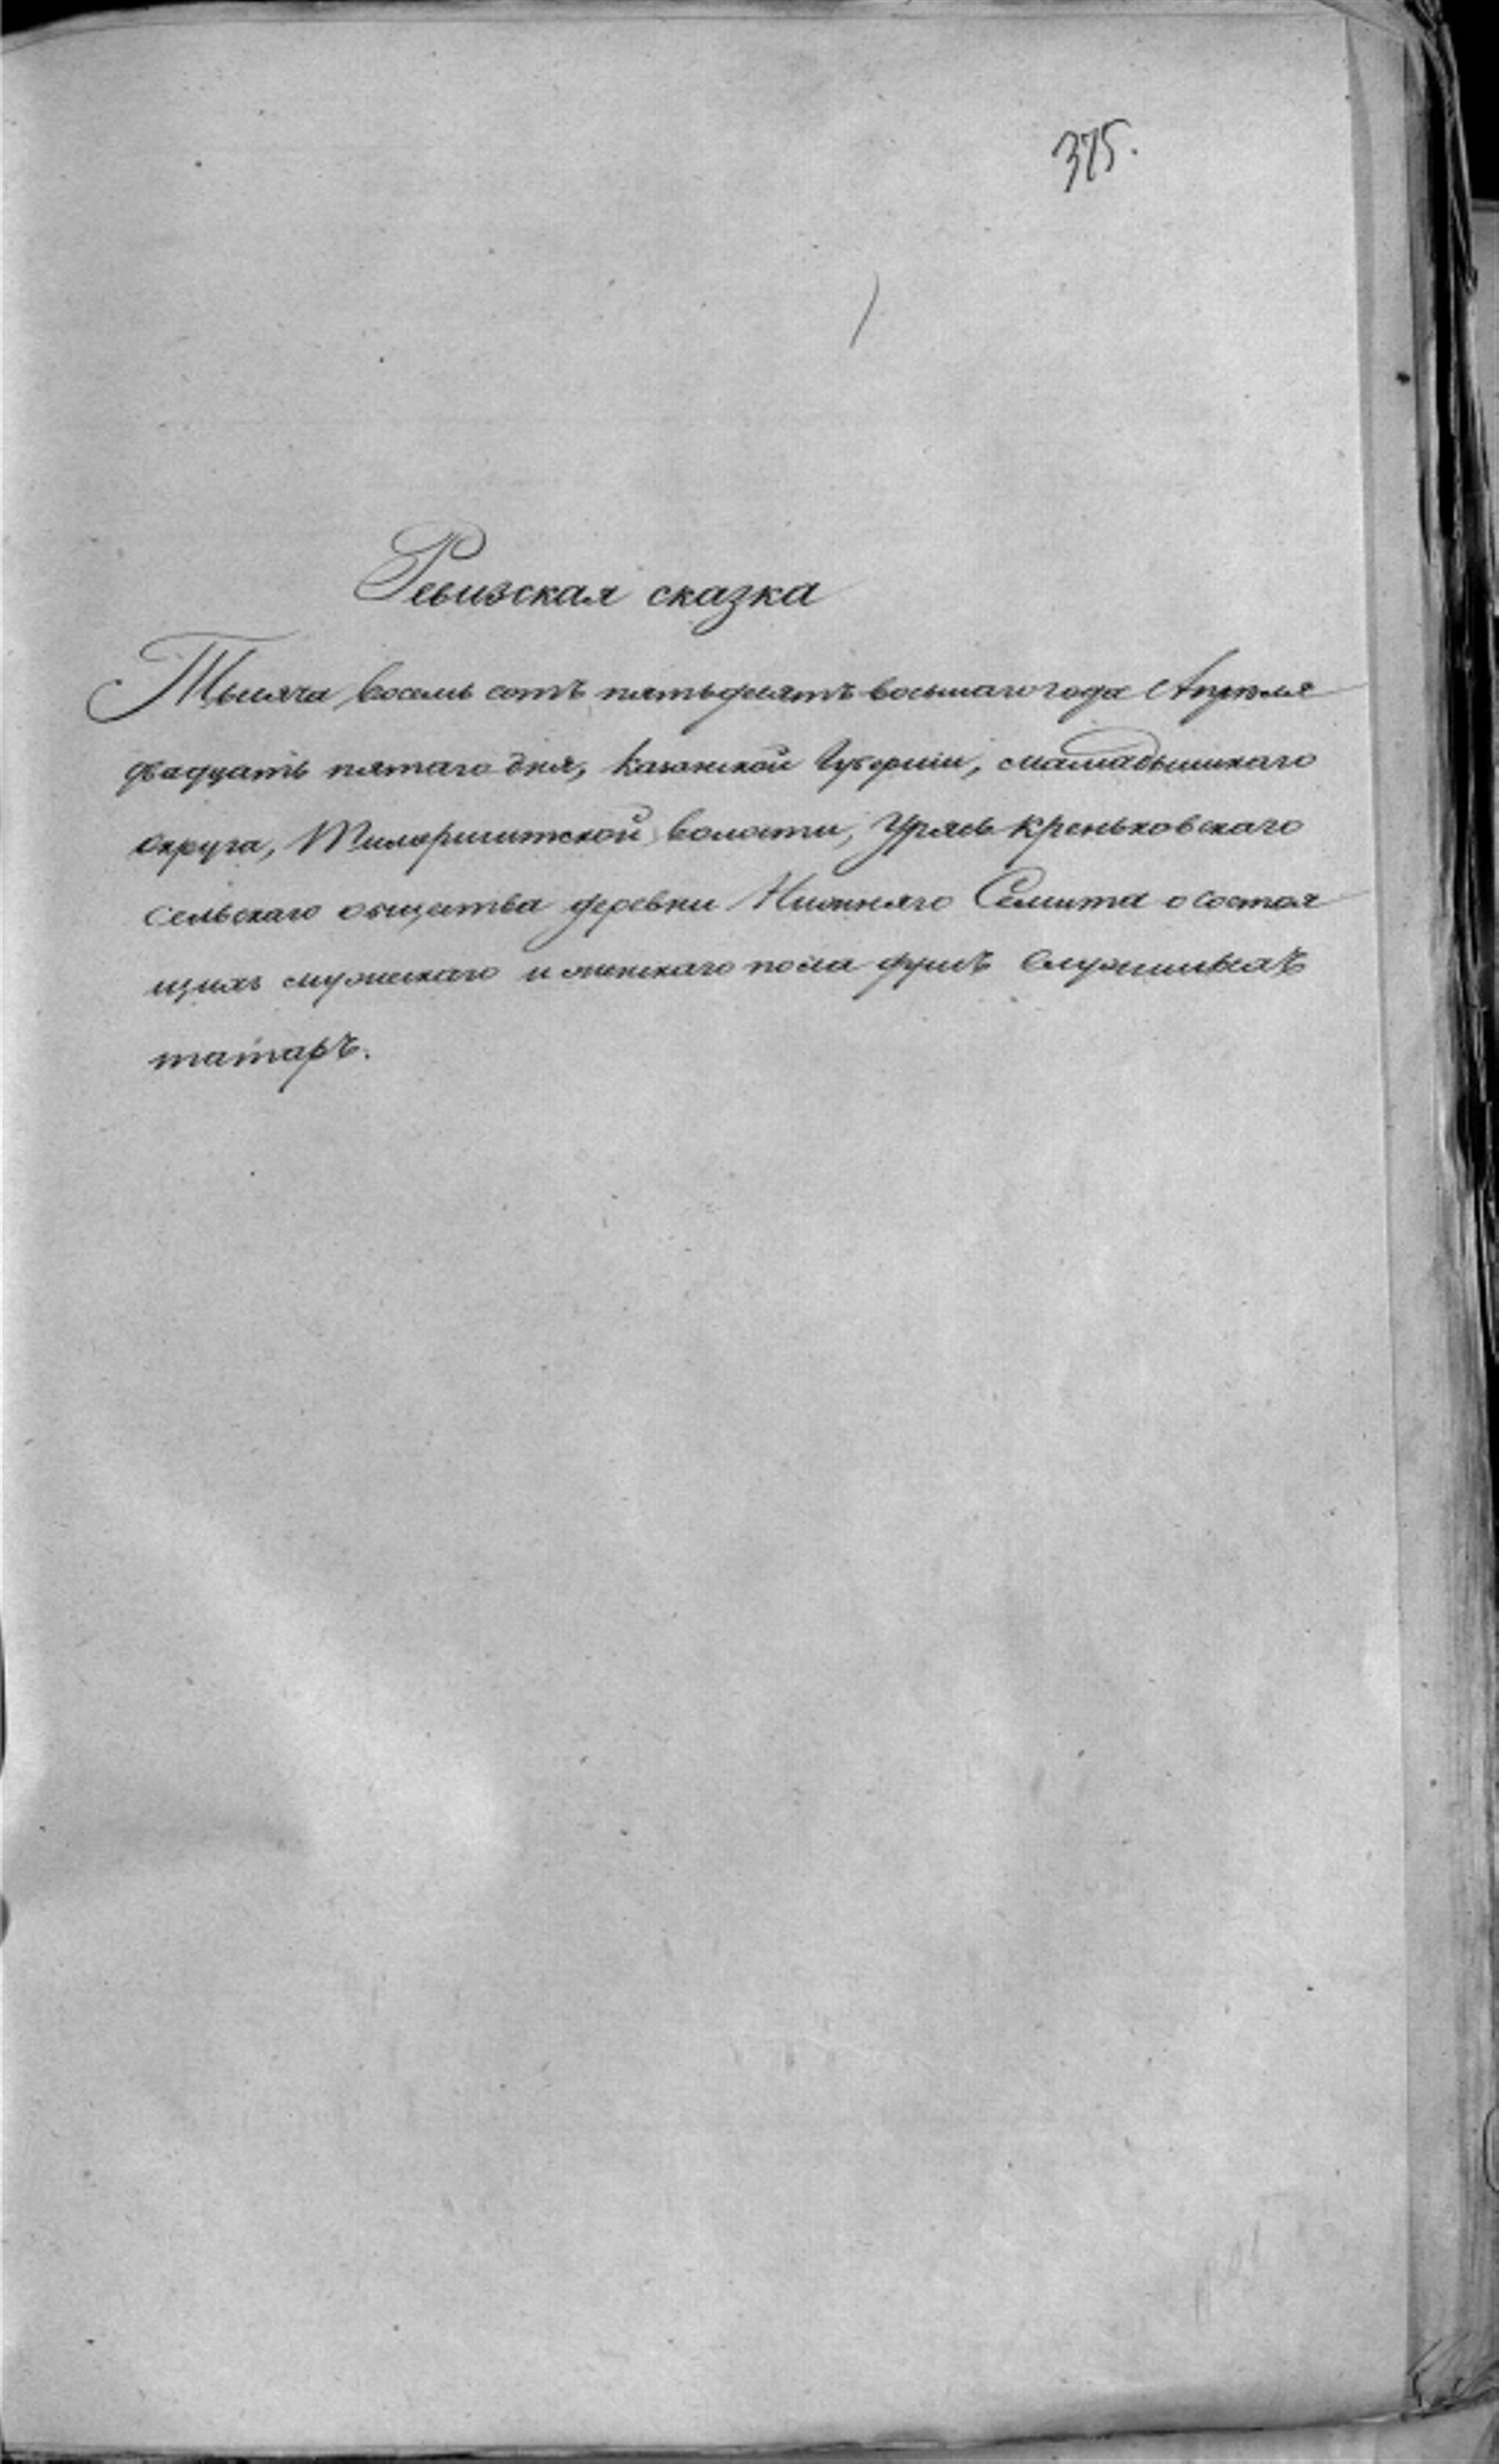 375.
Ревизская сказка
Тысяча восемь сотъ пятьдесятъ восьмаго года Апреля
двадцать пятаго дня, Казанской Губернiи, Мамадышскаго
округа, волости, Урясь-Креньковскаго
сельскаго общества деревни Нижняго Семита о состоя
щихъ мужескаго и женскаго пола душъ Служилыхъ
татаръ.